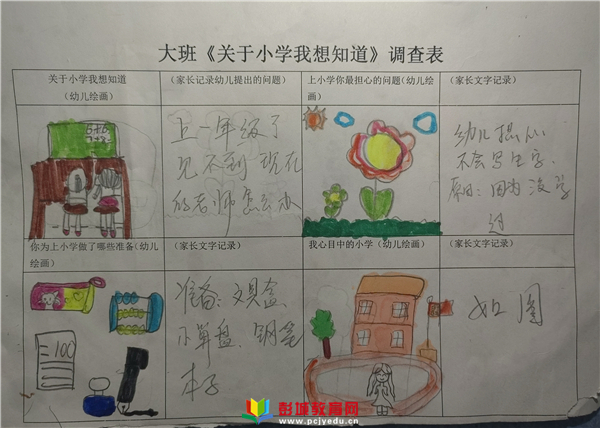 大班《关于小学我想知道》调查表
关于小学我想知道
（幼儿绘画）
（家长记录幼儿提出的问题）
上小学你最担心的问题(幼儿绘
画）
（家长文字记录）
上一年级了
见不到现在
的老师怎么办
幼儿担心
不会写生字.
原因：因为没学
过
你为上小学做了哪些准备(幼儿
绘画）
（家长文字记录）
我心目中的小学（幼儿绘画）
（家长文字记录）
准备：文具盒、
小算盘、钢笔
本子
如图
100
彭城教育网
www.pcjyedu.cn